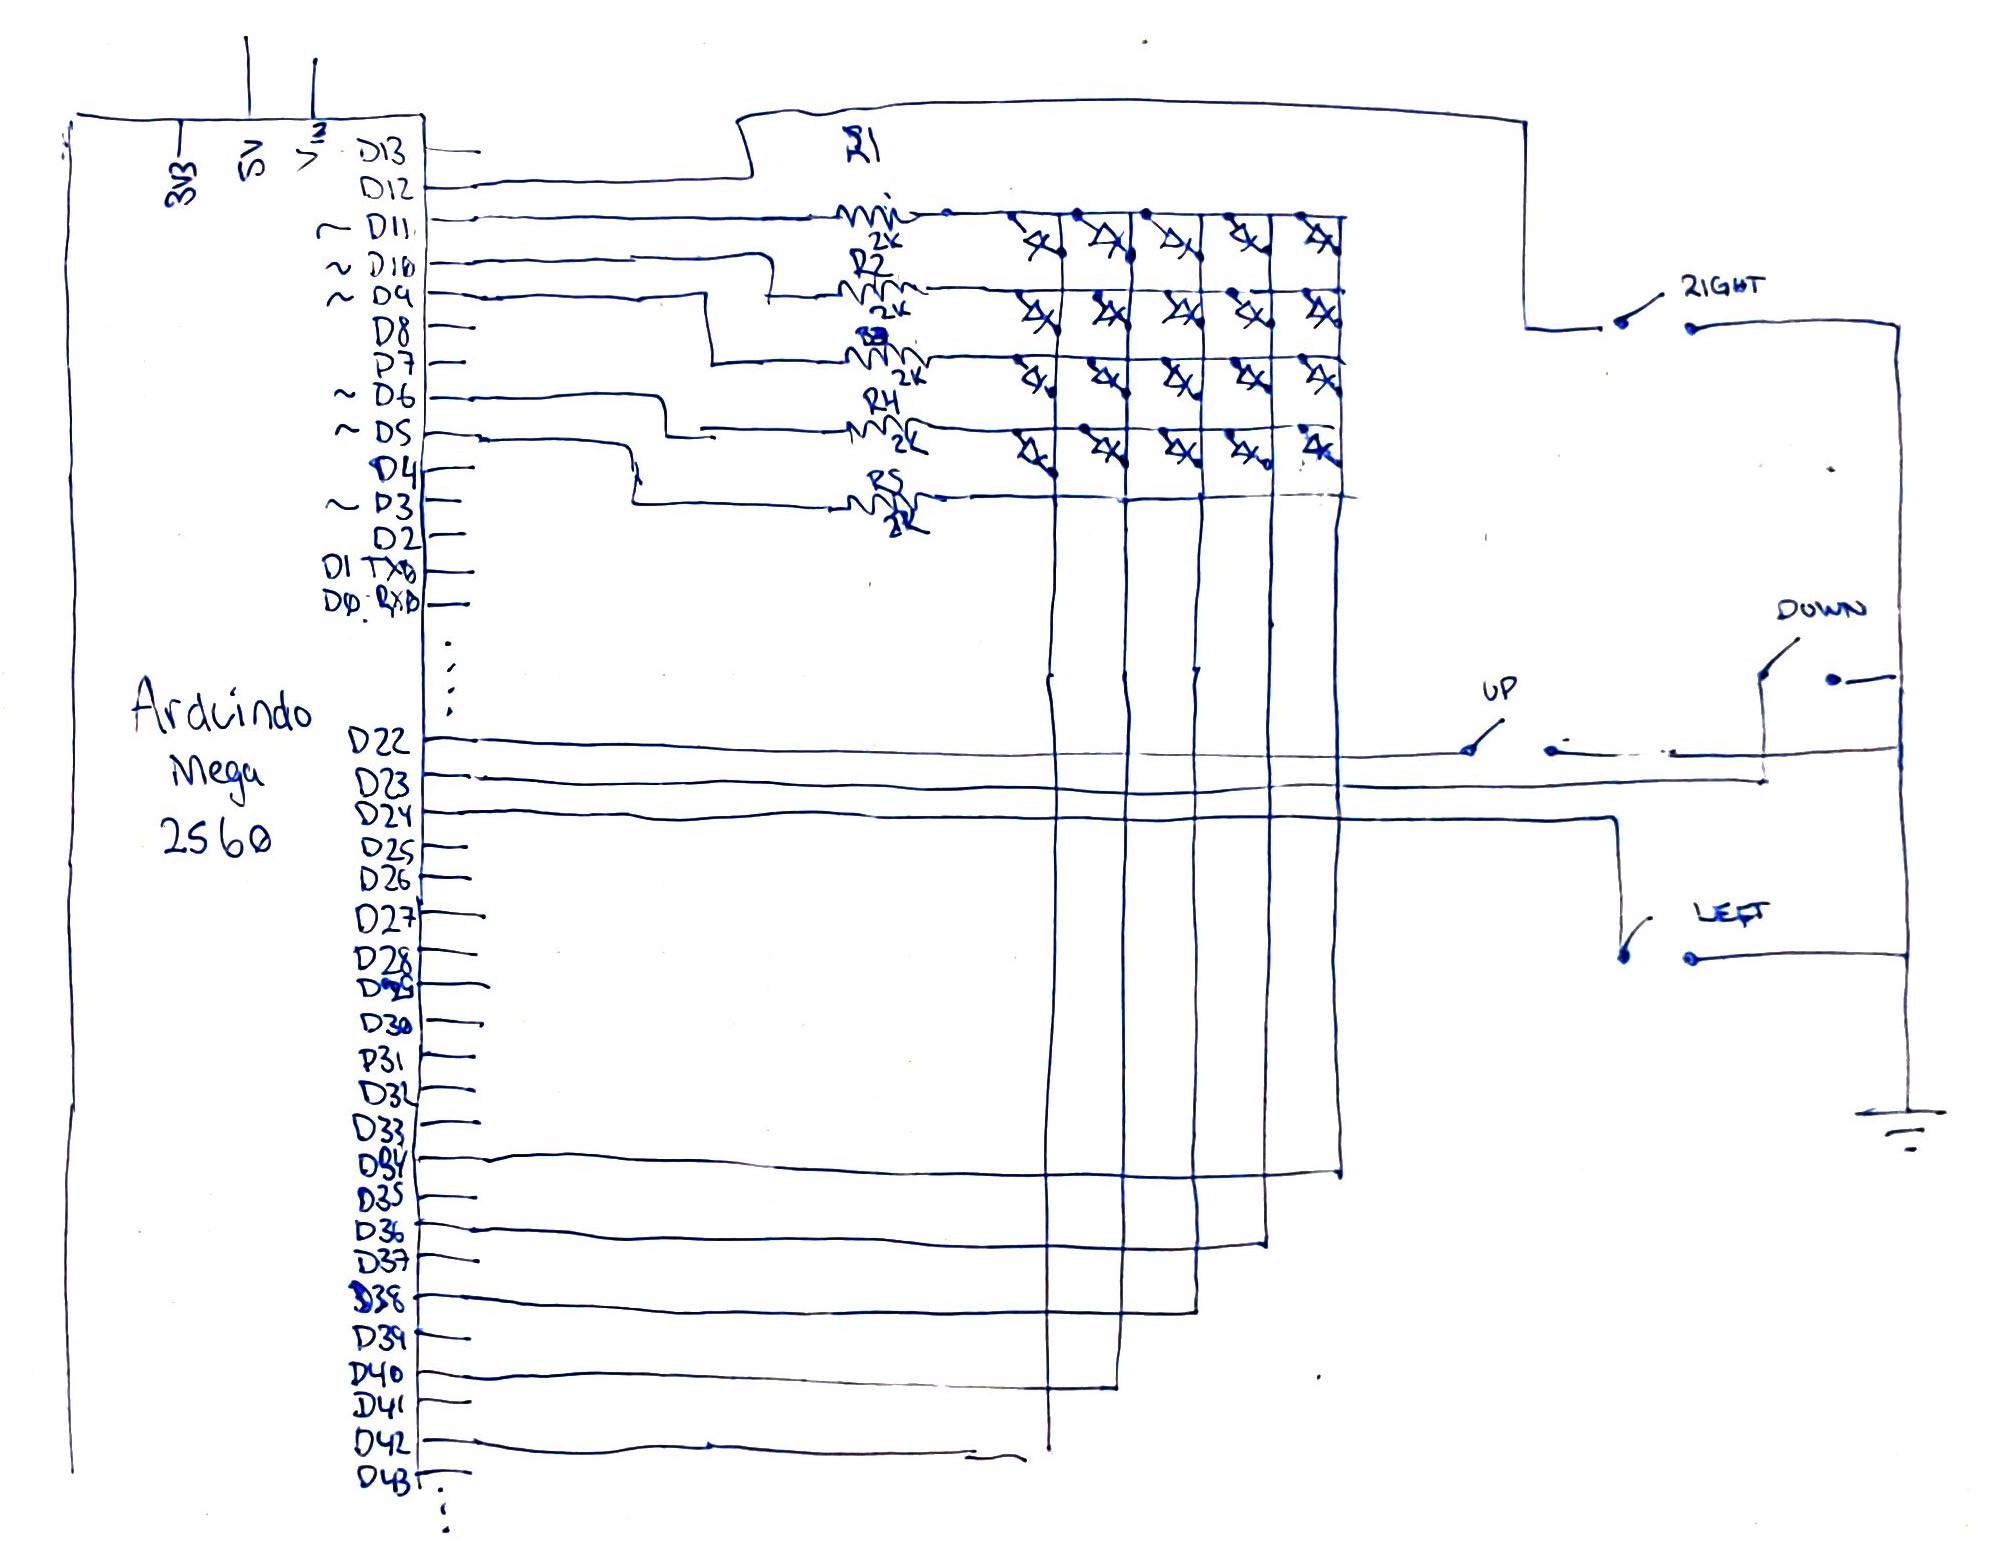 3V3
5V
D13
D12
~ D11
~ D10
~ D9
D8
D7
~ D6
~ D5
D4
~ D3
D2
D1 TX0
D0 RX0
Arduindo
Mega
2560
D22
D23
D24
D25
D26
D27
D28
D29
D30
D31
D32
D33
D34
D35
D36
D37
D38
D39
D40
D41
D42
D43
R1
2K
R2
2K
2K
R4
2K
R5
2K
RIGHT
DOWN
UP
LEFT